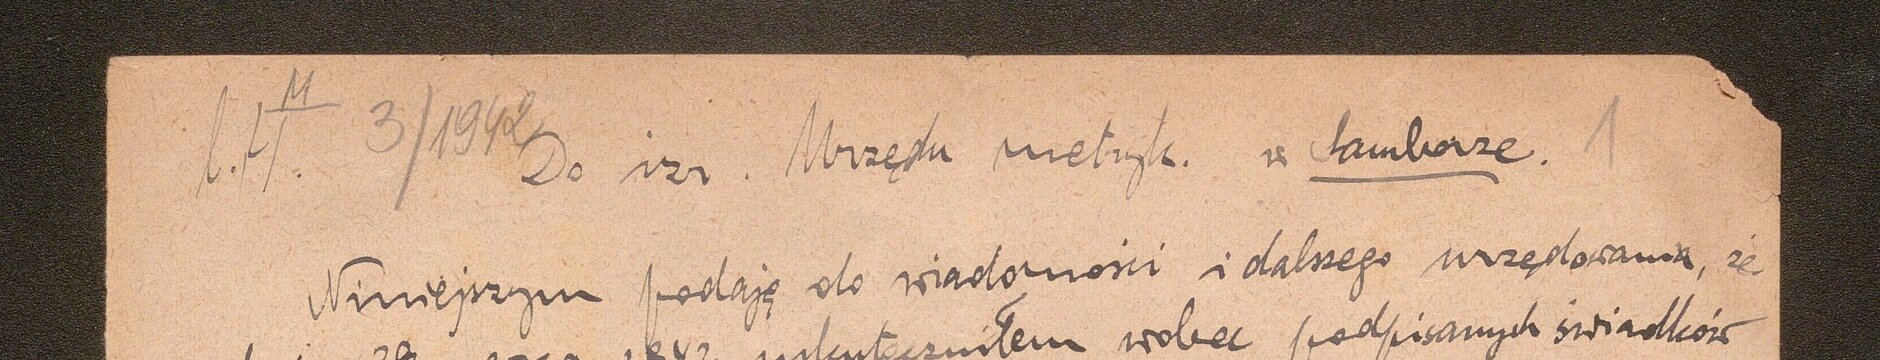 3/1942
Do izr. Urzędu metryk. w Samborze. 1
Niniejszym podaję do wiadomości i dalszego urzędowania, że
uskuteczniłem wobec podpisanych świadków